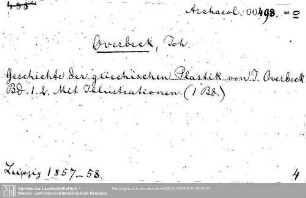 488
Archaeol. 00498. = 0
Overbeck, Joh.
Geschichte der griechischen Plastik von J. Overbeck
Bd. 1. 2. Mit Illustrationen. (1 Bd.)
Leipzig 1857-58.
4
Sächsische Landesbibliothek -
Staats- und Universitätsbibliothek Dresden